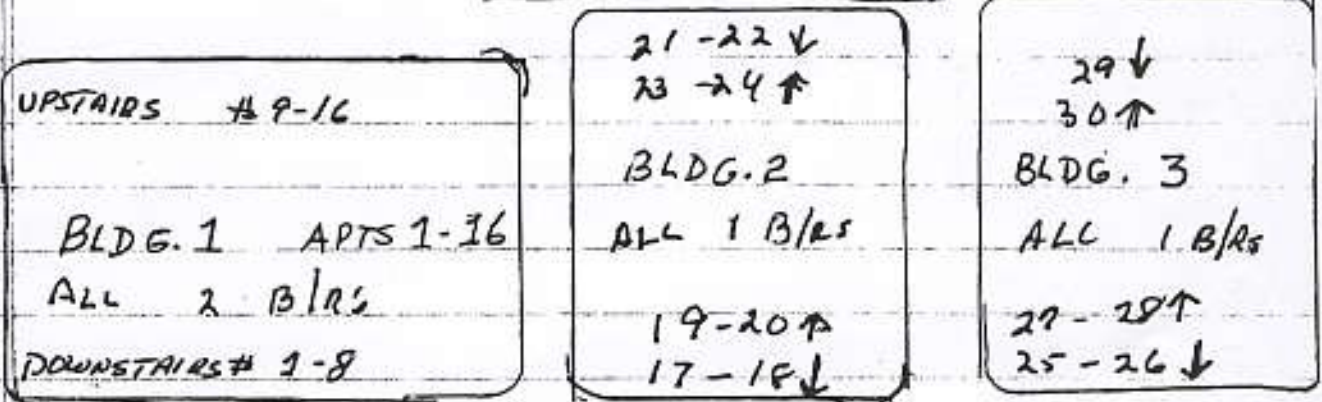 UPSTAIRS # 9-16
BLDG. 1 APTS 1-16
ALL 2 B/R's
DOWNSTAIRS # 1-8
21-22 ↓
23-24 ↑
BLDG. 2
ALL 1 B/Rs
19-20 ↑
17-18 ↓
29 ↓
30 ↑
BLDG. 3
ALL 1 B/Rs
27-28 ↑
25-26 ↓